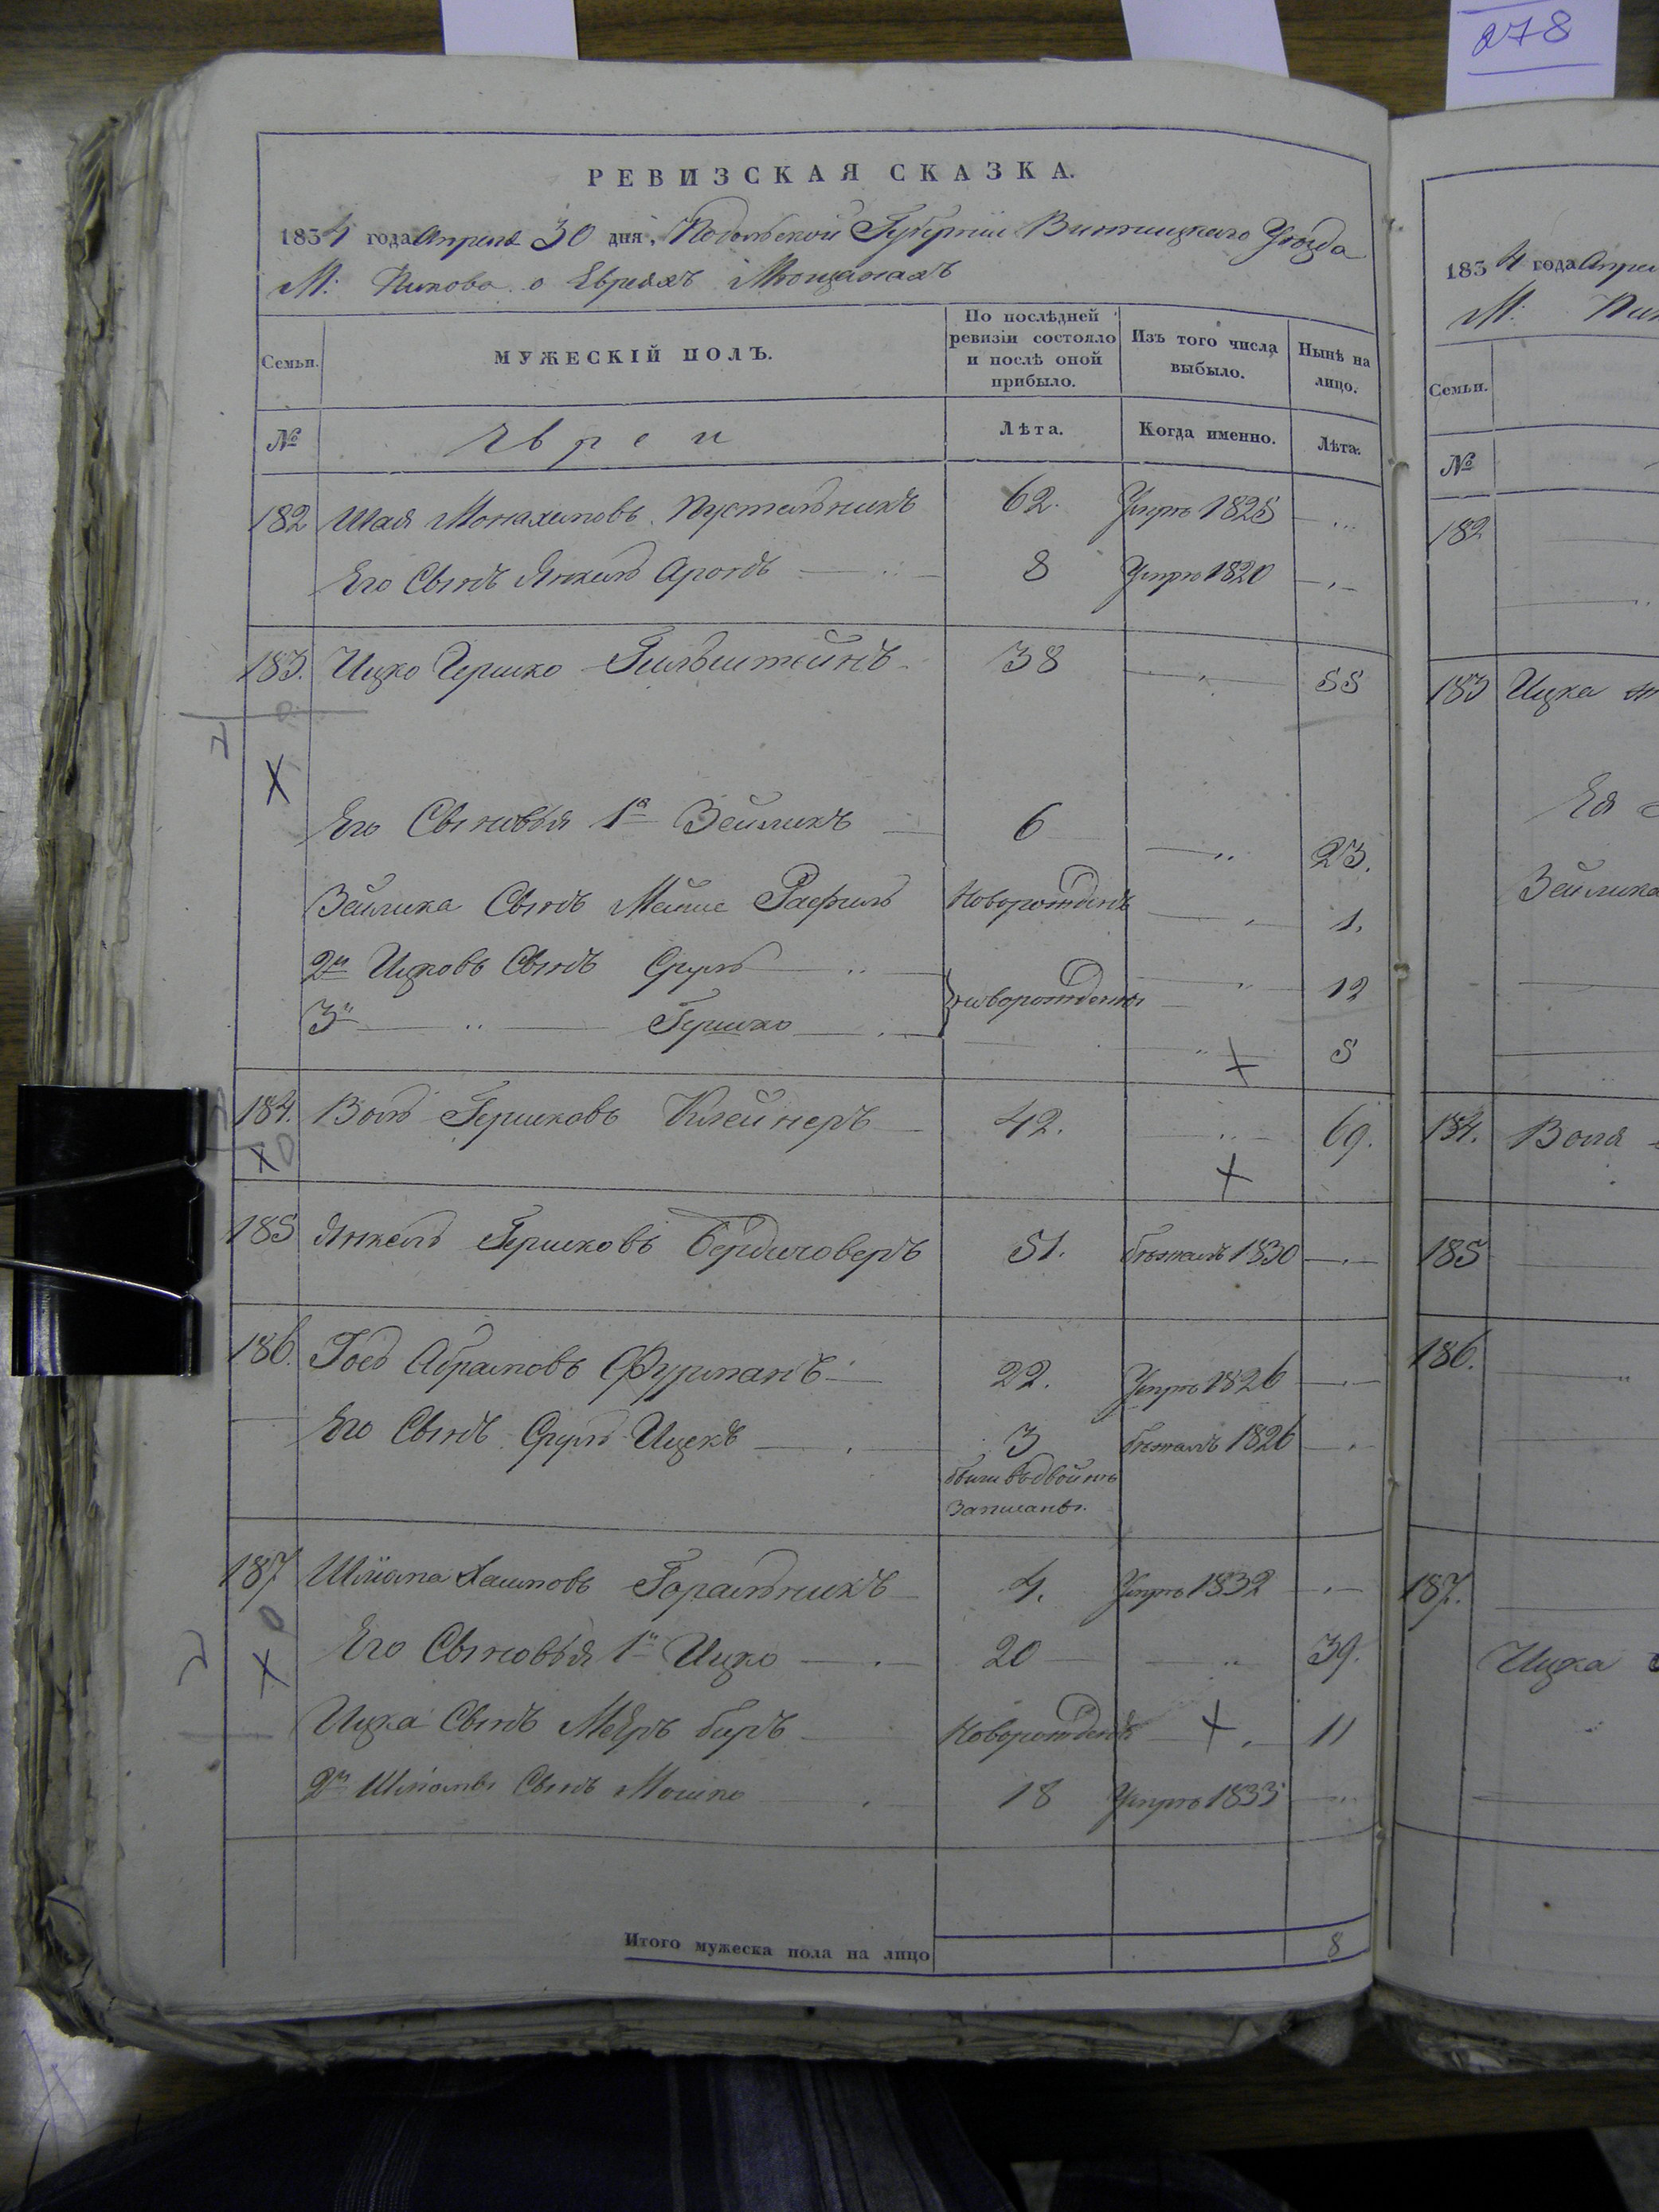 278
РЕВИЗСКАЯ СКАЗКА.
1834 года Апреля 30 дня, Подольской Губерніи Винницкаго Уѣзда
М: Пикова о Евреяхъ Мѣщанахъ
Семьи.
МУЖЕСКІЙ ПОЛЪ.
По послѣдней ревизіи состояло и послѣ оной прибыло.
Изъ того числа выбыло.
Нынѣ на лицо.
№
Евреи
Лѣта.
Когда именно.
Лѣта.
182 Шая Монахимовъ Пустельникъ 62. Умрѣ 1825
Его Сынъ Янкель Аронъ 8 Умрѣ 1820
183. Ицко Гершко Гильштейнъ 38 55
Его Сыновья 1й Зейликъ 6 23.
Зейлика Сынъ Рафиль Новорожденъ 1.
2й Ицковъ Сынъ Сруль 12
новорожденны
3й Гершко 5
184. Воль Гершковъ Клейнеръ 42. 69.
185 Янкель Гершковъ Бердичоверъ 51. бѣжалъ 1830
186. Абрамовъ Фурманъ 22. Умрѣ 1826
Его Сынъ Сруль Ицекъ 3 бѣжалъ 1826
были въдвойнѣ
записаны.
187 Шліома Хаимовъ Горальникъ 4. Умрѣ 1832
Его Сыновья 1й Ицко 20 39.
Ицка Сынъ Мееръ беръ Новорожденъ 11
2й Шліомы Сынъ Мошко 18 Умрѣ 1833
Итого мужеска пола на лицо 8
1834 года Апрел
М:
Семьи.
№
182
183 Ицка
Зейлика
184. Воля
185
186.
187.
Ицка